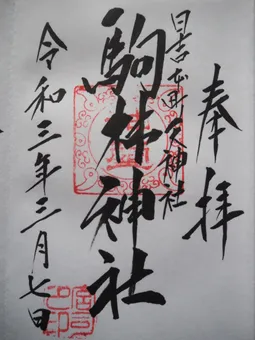 奉拝
日吉本町
駒林神社
令和三年三月七日
宮司之印